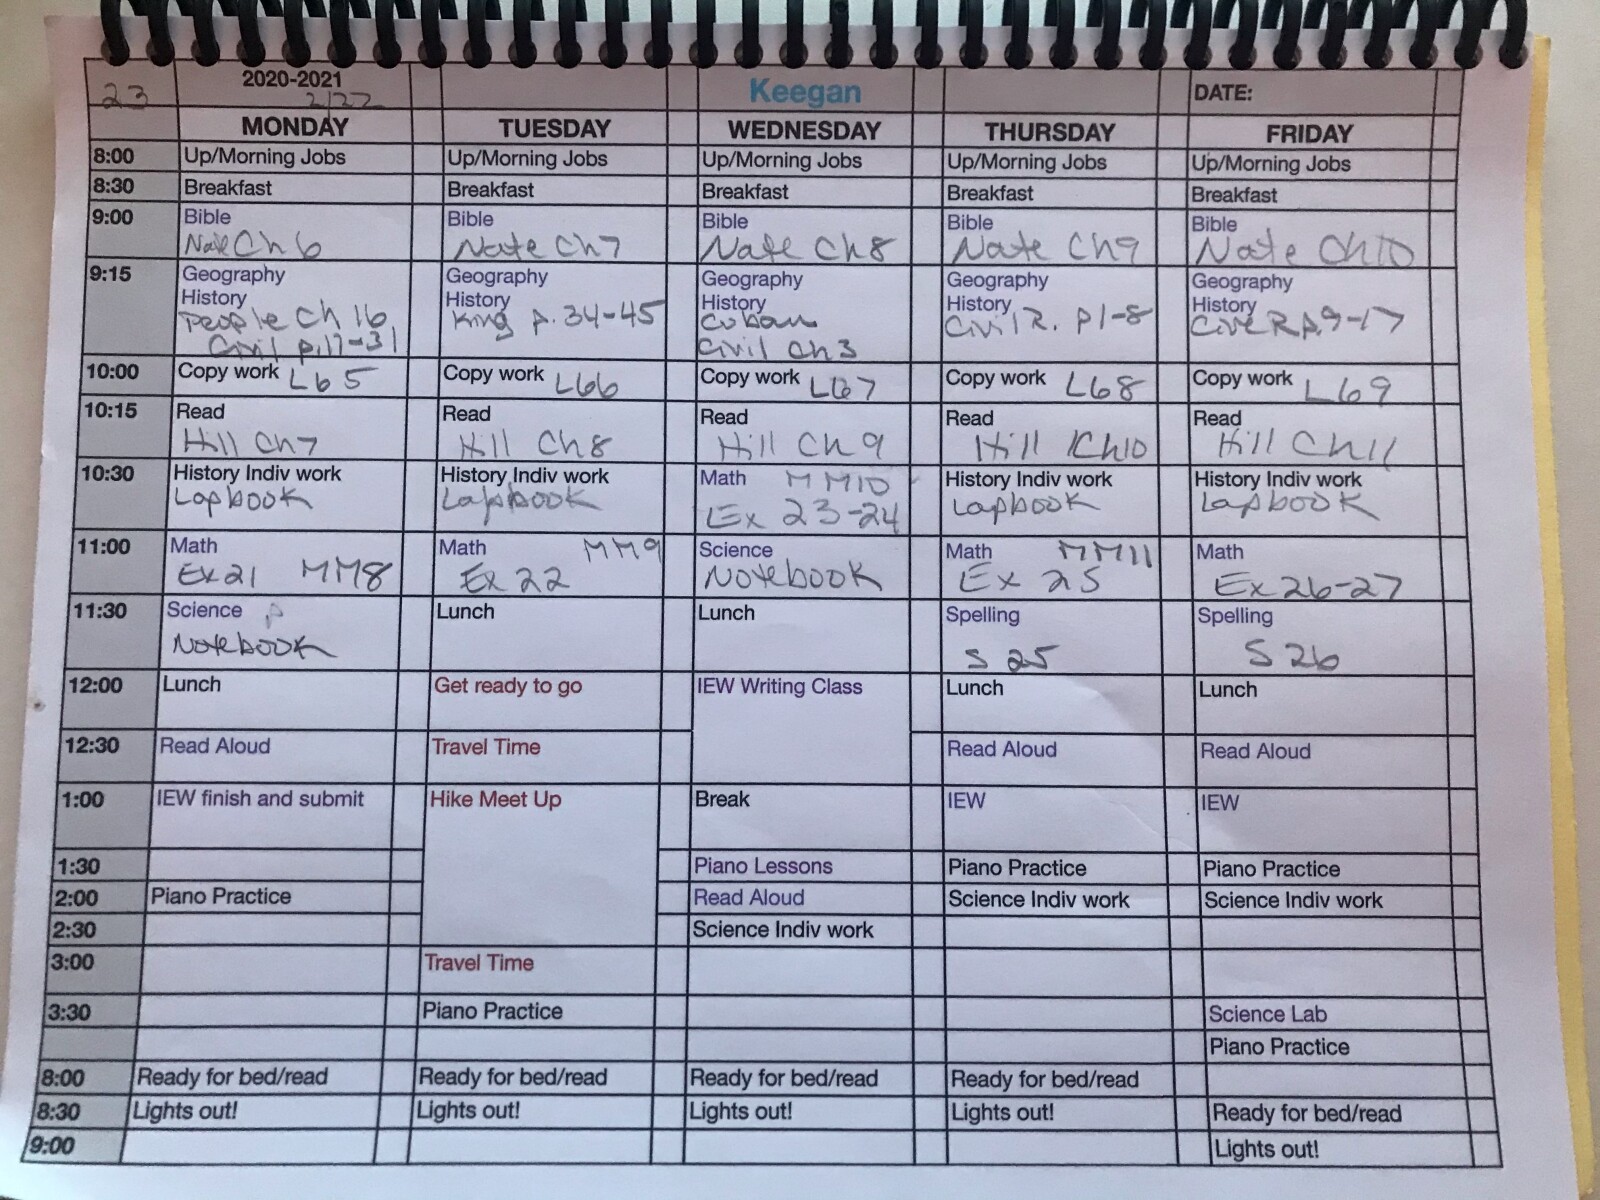 23 2020-2021 2/22 Keegan DATE:
MONDAY TUESDAY WEDNESDAY THURSDAY FRIDAY
8:00 Up/Morning Jobs Up/Morning Jobs Up/Morning Jobs Up/Morning Jobs Up/Morning Jobs
8:30 Breakfast Breakfast Breakfast Breakfast Breakfast
9:00 Bible Bible Bible Bible Bible
Nate Ch 6 Nate Ch 7 Nate Ch 8 Nate Ch 9 Nate Ch 10
9:15 Geography Geography Geography Geography Geography
History History History History History
People Ch 16 King p. 34-45 Cuban Civil R. p 1-8 Civil R p. 9-17
Civil p. 17-31 Civil Ch 3
10:00 Copy work L65 Copy work L66 Copy work L67 Copy work L68 Copy work L69
10:15 Read Read Read Read Read
Hill Ch 7 Hill Ch 8 Hill Ch 9 Hill Ch 10 Hill Ch 11
10:30 History Indiv work History Indiv work Math MM10 History Indiv work History Indiv work
Lapbook Lapbook Ex 23-24 Lapbook Lapbook
11:00 Math Math MM9 Science Math MM11 Math
Ex 21 MM8 Ex 22 Notebook Ex 25 Ex 26-27
11:30 Science Lunch Lunch Spelling Spelling
Notebook S 25 S 26
12:00 Lunch Get ready to go IEW Writing Class Lunch Lunch
12:30 Read Aloud Travel Time Read Aloud Read Aloud
1:00 IEW finish and submit Hike Meet Up Break IEW IEW
1:30 Piano Lessons Piano Practice Piano Practice
2:00 Piano Practice Read Aloud Science Indiv work Science Indiv work
2:30 Science Indiv work
3:00 Travel Time
3:30 Piano Practice Science Lab
Piano Practice
8:00 Ready for bed/read Ready for bed/read Ready for bed/read Ready for bed/read
8:30 Lights out! Lights out! Lights out! Lights out! Ready for bed/read
9:00 Lights out!